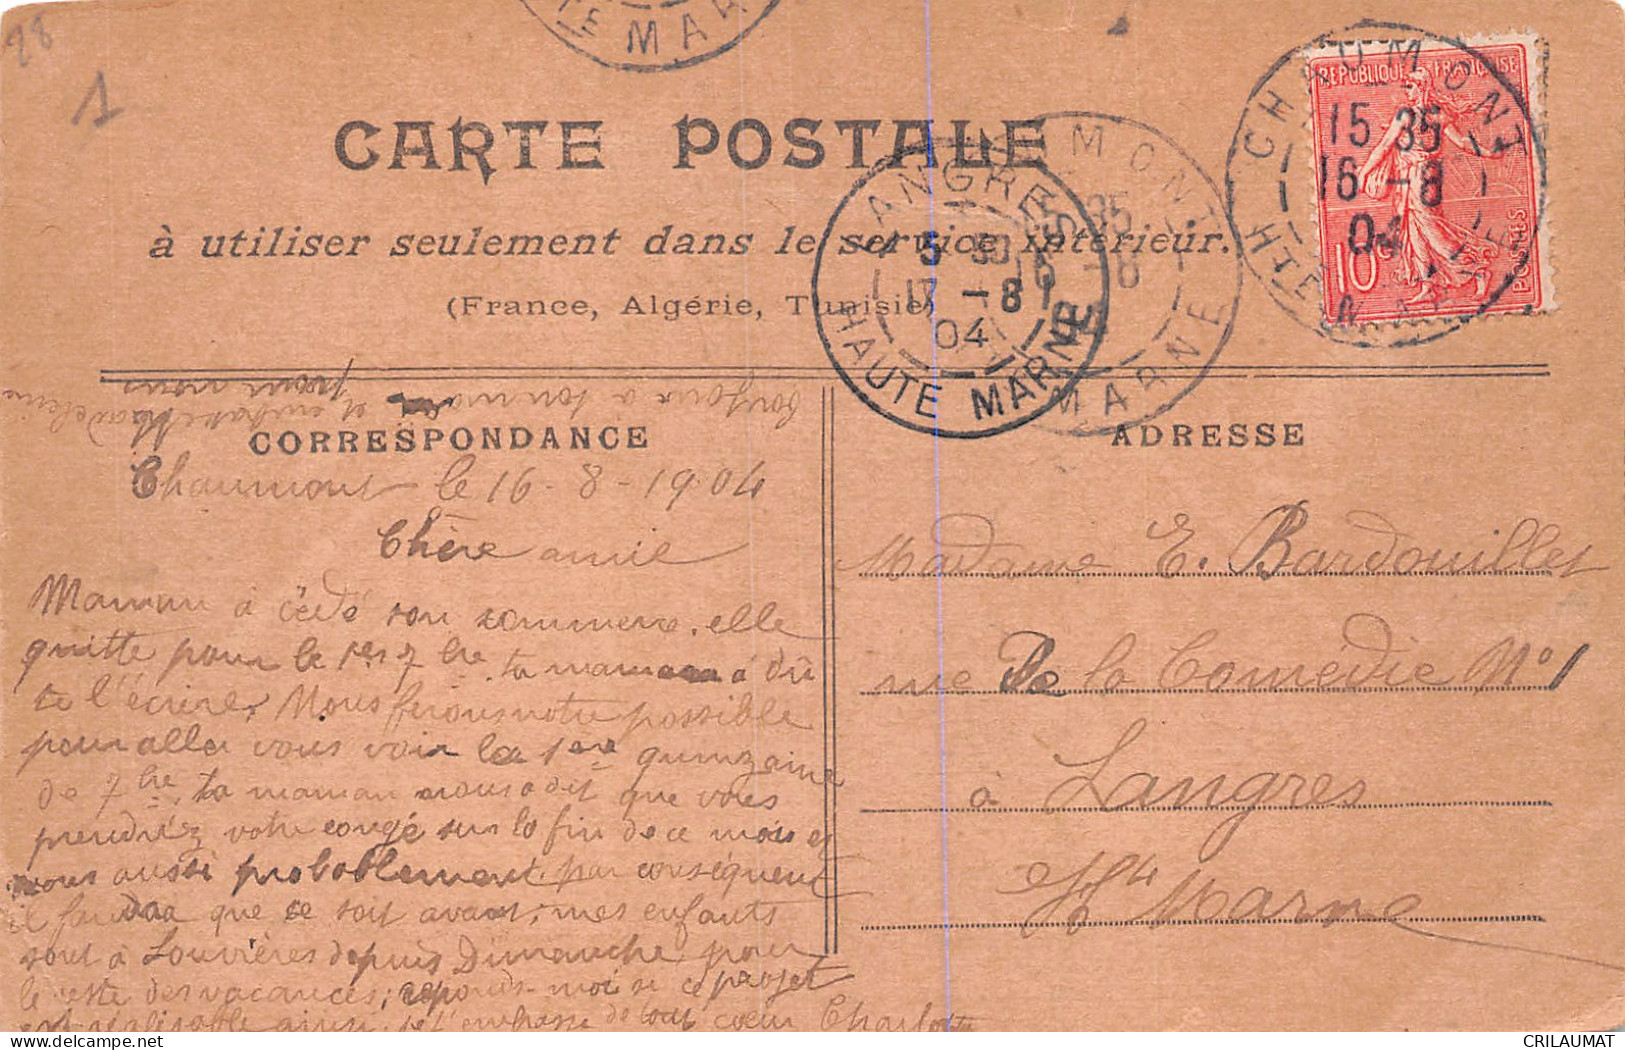 28
1
TE MAR
CARTE POSTALE
à utiliser seulement dans le service intérieur.
(France, Algérie, Tunisie)
CHAUMONT
15 35
16 -8
04
HTE MARNE
REPUBLIQUE FRANÇAISE
10c
POSTES
LANGRES
5 30
17 -8
04
HAUTE MARNE
MONT
35
16 -8
MARNE
toujours à ton mari et embrasse Madeleine
pour nous
CORRESPONDANCE
ADRESSE
Chaumont le 16-8-1904
Chère amie
Maman à cédé son commerce. elle
quitte pour le 1er 7bre. ta maman a dû
te l'écrire. Nous ferons notre possible
pour aller vous voir la 1ère quinzaine
de 7bre. ta maman nous a dit que vous
prendriez votre congé sur la fin de ce mois et
nous aussi probablement. par conséquent
il faudra que ce soit avant; mes enfants
sont à Louvières depuis Dimanche pour
le reste des vacances; réponds-moi si ce projet
est réalisable ainsi. je t'embrasse de tout cœur Charlotte
Madame E. Bardouillet
rue De la Comédie No 1
à Langres
Hte Marne
delcampe.net
CRILAUMAT